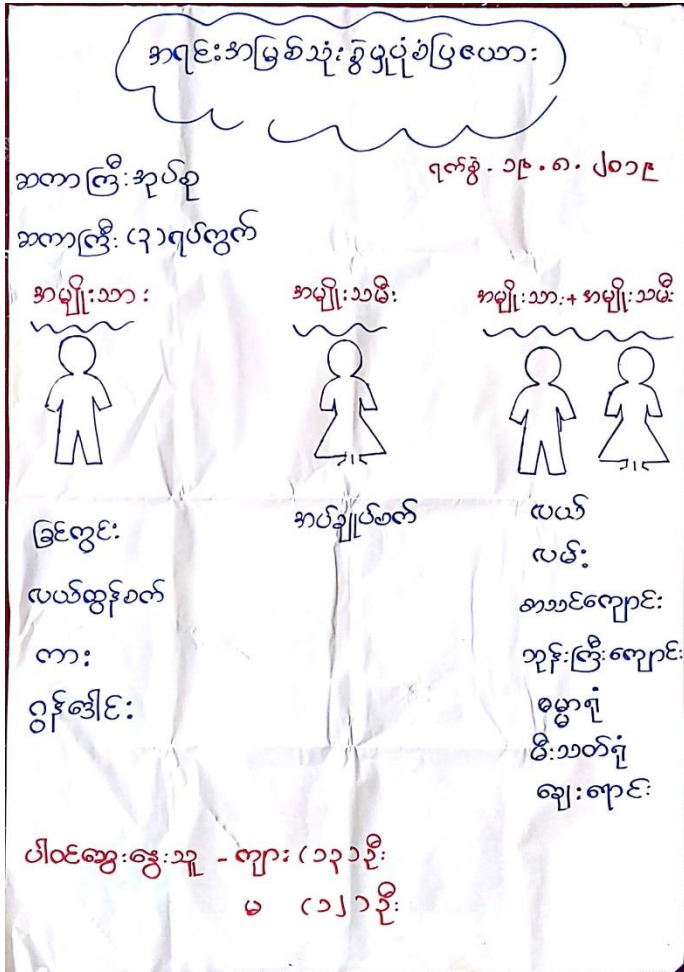 အရင်းအမြစ်သုံးစွဲမှုပုံစံပြဇယား
ဆကာကြီးအုပ်စု
ရက်စွဲ. ၁၉.၈.၂၀၁၉
ဆကာကြီး (၃)ရပ်ကွက်
အမျိုးသား
အမျိုးသမီး
အမျိုးသား+အမျိုးသမီး
ခြင်းကွင်း
လယ်ထွန်စက်
ကား
ဂွန်ဒေါင်း
အပ်ချုပ်စက်
လယ်
လမ်း
စာသင်ကျောင်း
ဘုန်းကြီးကျောင်း
ဓမ္မာရုံ
မီးသတ်ရုံ
ချေးရောင်း
ပါဝင်ဆွေးနွေးသူ - ကျား (၁၃)ဦး
မ (၁၂)ဦး